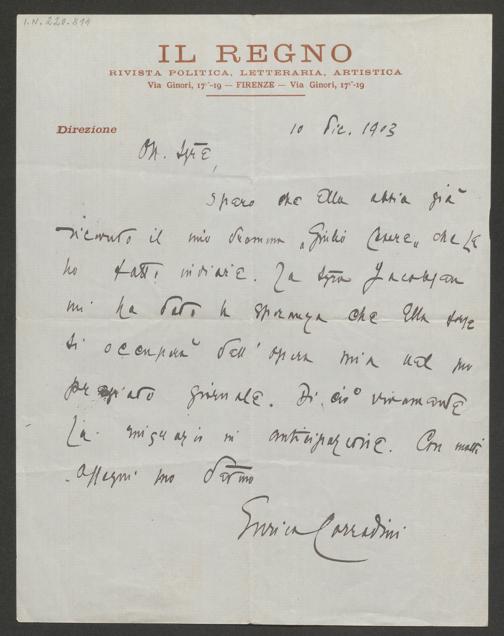 I.N. 220.814
IL REGNO
RIVISTA POLITICA, LETTERARIA, ARTISTICA
Via Ginori, 17-19 — FIRENZE — Via Ginori, 17-19
Direzione
10 Dic. 1903
On. Sgre,
Spero che Ella abbia già
ricevuto il mio dramma „Giulio Cesare„ che Le
ho fatto inviare. La Sgra Jacobsen
mi ha dato la speranza che Ella forse
si occuperà dell'opera mia nel suo
pregiato giornale. Di ciò vivamente
La ringrazio in anticipazione. Con molti
ossequi suo devmo
Enrico Corradini